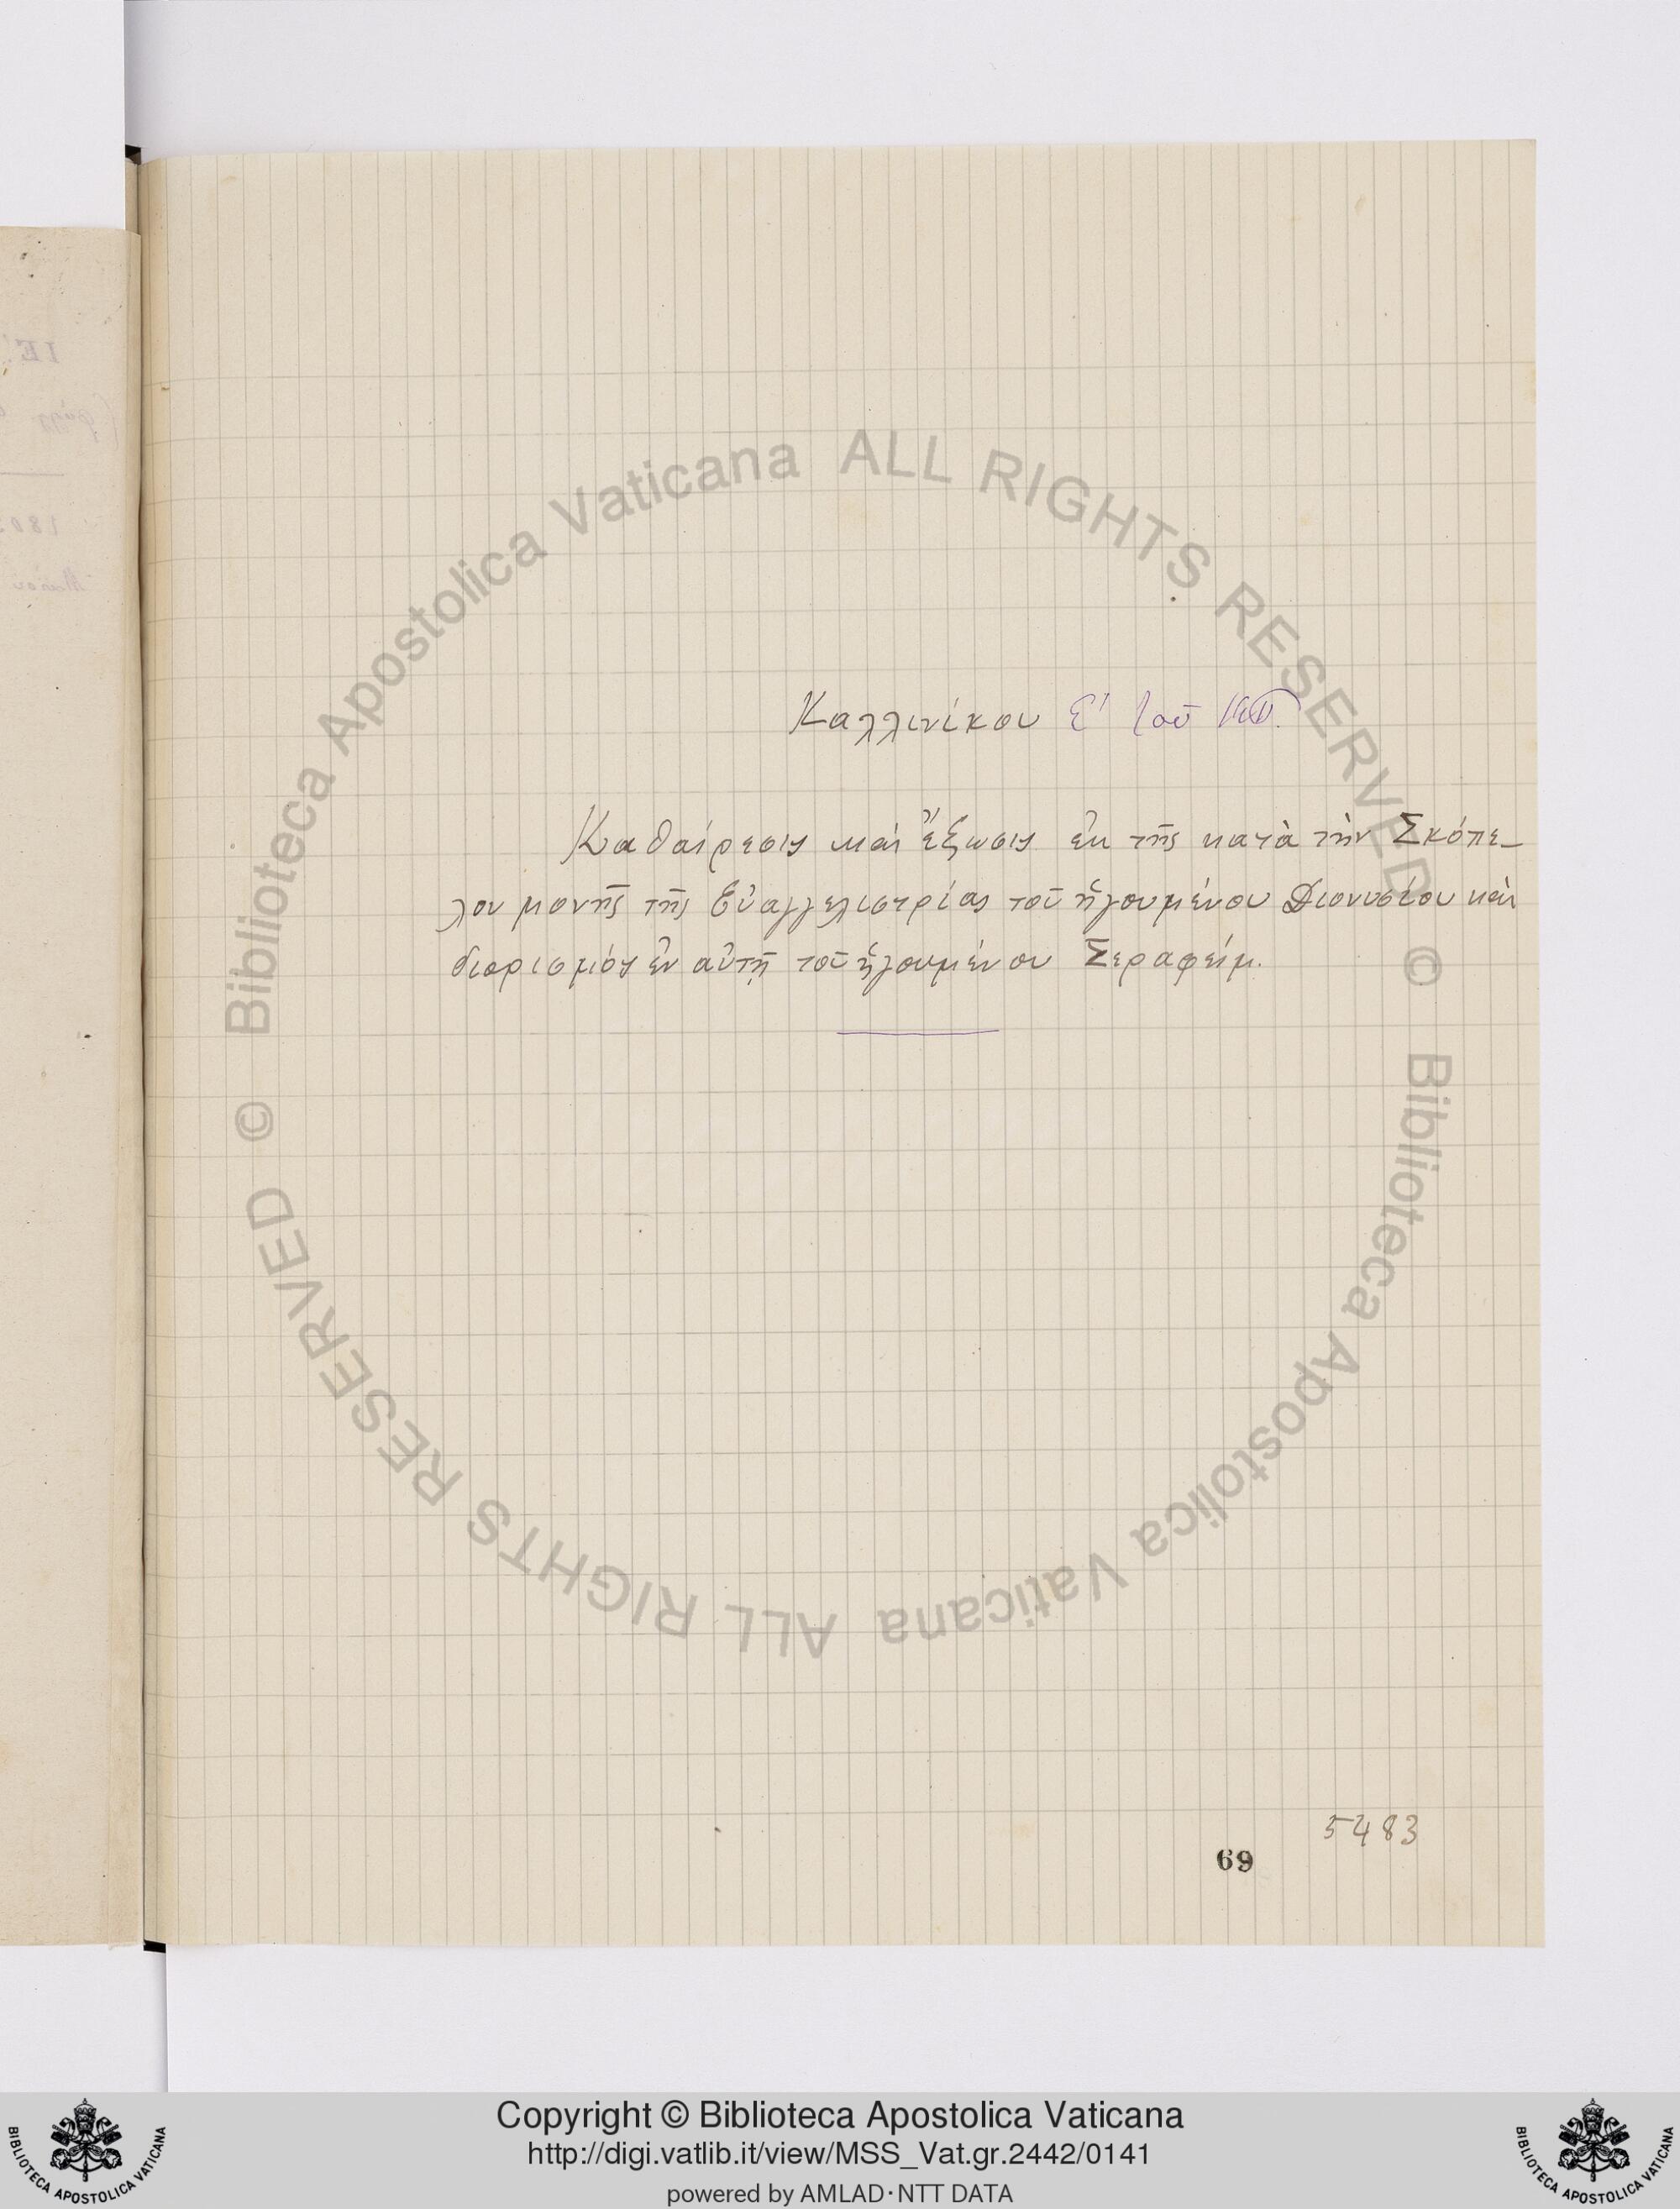 Καλλινίκου Ε΄ τοῦ
Καθαίρεσις καὶ ἔξωσις ἐκ τῆς κατὰ τὴν Σκόπε-
λον μονῆς τῆς Εὐαγγελιστρίας τοῦ ἡγουμένου Διονυσίου καὶ
διορισμὸς ἐν αὐτῇ τοῦ ἡγουμένου Σεραφείμ.
5483
69
© Biblioteca Apostolica Vaticana ALL RIGHTS RESERVED
© Biblioteca Apostolica Vaticana ALL RIGHTS RESERVED
Copyright © Biblioteca Apostolica Vaticana
http://digi.vatlib.it/view/MSS_Vat.gr.2442/0141
powered by AMLAD·NTT DATA
BIBLIOTECA APOSTOLICA VATICANA
BIBLIOTECA APOSTOLICA VATICANA